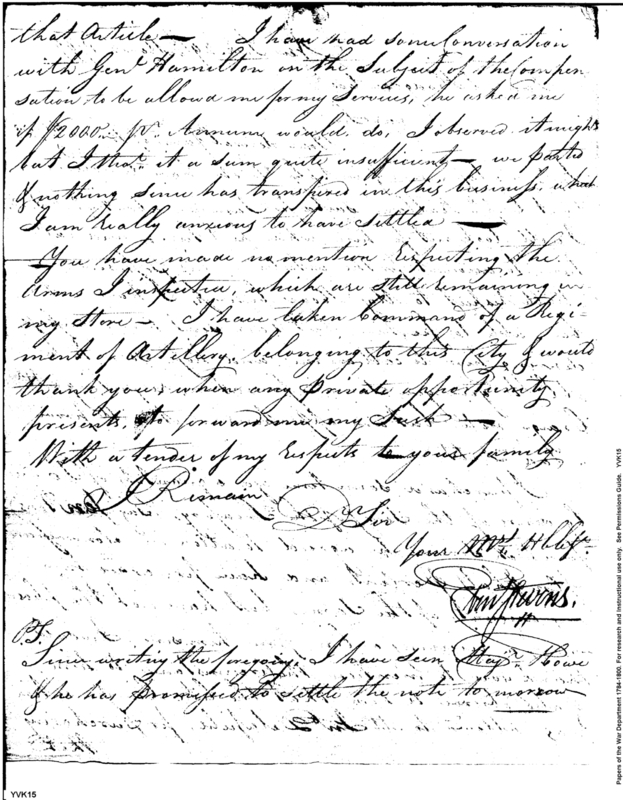 that Article — I have had some Conversation
with Genl. Hamilton on the Subject of the Compen-
sation to be allowd me for my Services, he asked me
if $2000 pr. Annum would do, I observed it might
but I thot. it a sum quite insufficient — we parted
& nothing since has transpired in this business, which
I am really anxious to have settled —
You have made no mention respecting the
Arms I inspected, which are still remaining in
my Store — I have taken Command of a Regi-
ment of Artillery, belonging to this City & would
thank you, when any private opportunity
presents, to forward me my
With a tender of my respects to your family
I Remain
Sir
Your Mot. Hble
Eben Stevens.
PS.
Since writing the foregoing, I have seen Majr. Howe
& he has promised to settle the note to morrow
YVK15
Papers of the War Department 1784-1800. For research and instructional use only. See Permissions Guide. YVK15